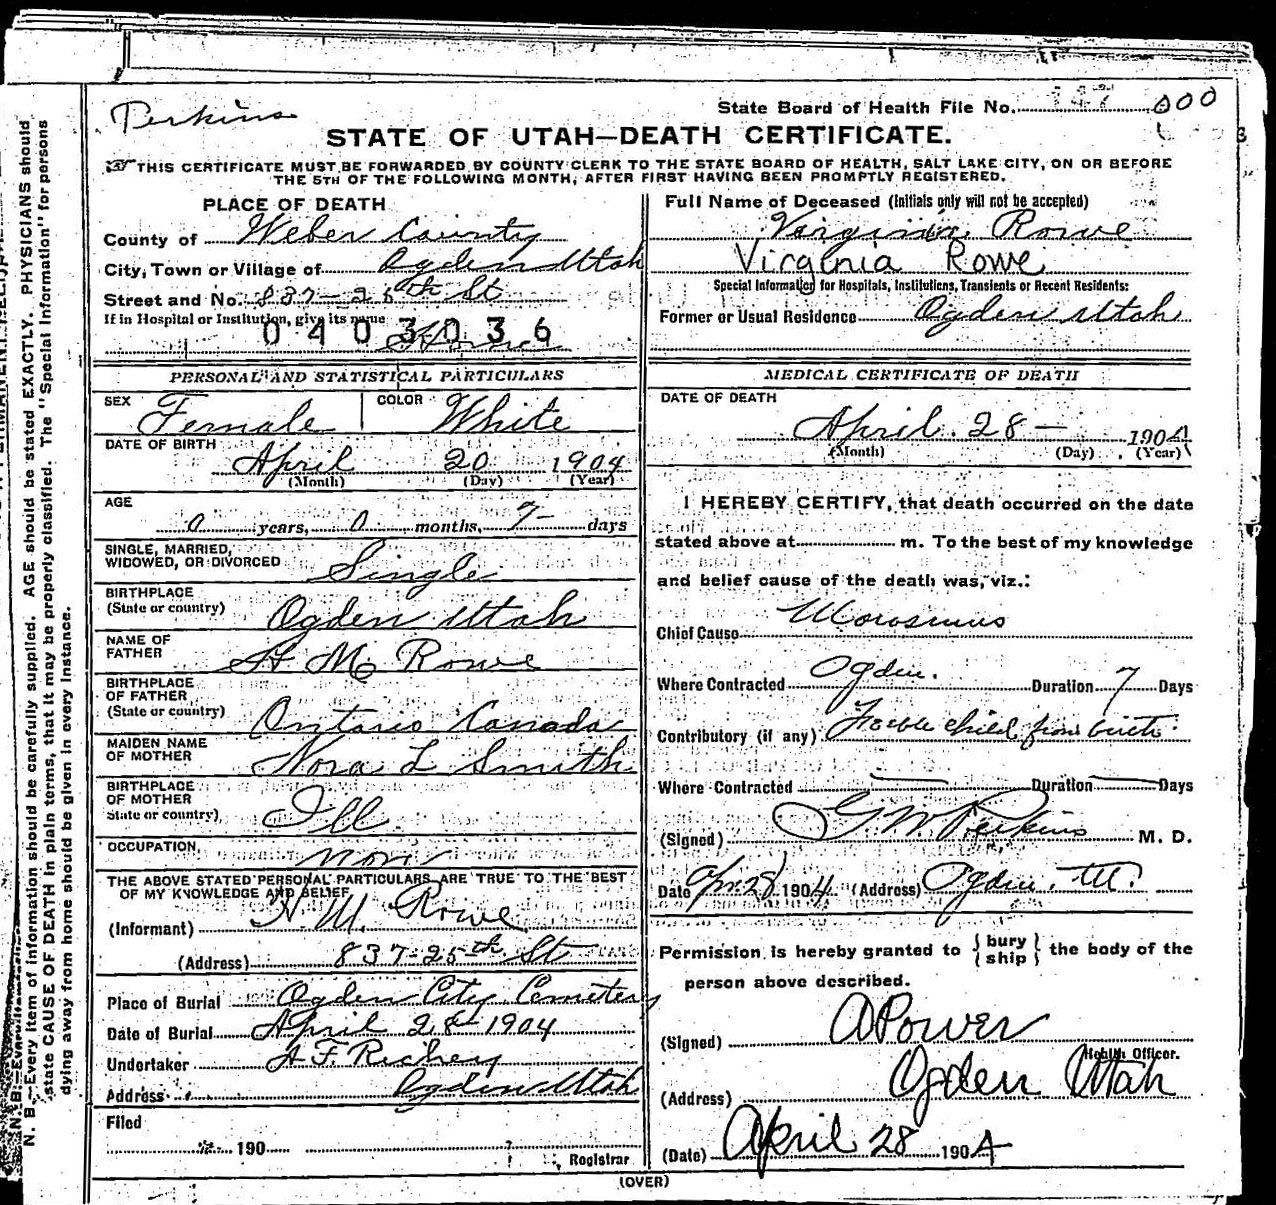 Perkins
State Board of Health File No. 147 000
STATE OF UTAH—DEATH CERTIFICATE.
THIS CERTIFICATE MUST BE FORWARDED BY COUNTY CLERK TO THE STATE BOARD OF HEALTH, SALT LAKE CITY, ON OR BEFORE
THE 5TH OF THE FOLLOWING MONTH, AFTER FIRST HAVING BEEN PROMPTLY REGISTERED.
PLACE OF DEATH
County of Weber County
City, Town or Village of Ogden Utah
Street and No. 837-25th St
If in Hospital or Institution, give its name
0403036
Home
Full Name of Deceased (Initials only will not be accepted)
Virginia Rowe
Virginia Rowe
Special Information for Hospitals, Institutions, Transients or Recent Residents:
Former or Usual Residence Ogden Utah
PERSONAL AND STATISTICAL PARTICULARS
SEX Female COLOR White
DATE OF BIRTH
April 20 1904
(Month) (Day) (Year)
AGE
0 years, 0 months, 7 days
SINGLE, MARRIED,
WIDOWED, OR DIVORCED Single
BIRTHPLACE
(State or country) Ogden Utah
NAME OF
FATHER H M Rowe
BIRTHPLACE
OF FATHER
(State or country) Ontario Canada
MAIDEN NAME
OF MOTHER Nora L Smith
BIRTHPLACE
OF MOTHER
State or country) Ill
OCCUPATION
None
THE ABOVE STATED PERSONAL PARTICULARS ARE TRUE TO THE BEST
OF MY KNOWLEDGE AND BELIEF
(Informant) H. M. Rowe
(Address) 837-25th St
Place of Burial Ogden City Cemetery
Date of Burial April 28 1904
Undertaker A. F. Richey
Address Ogden Utah
Filed
190
Registrar
MEDICAL CERTIFICATE OF DEATH
DATE OF DEATH
April 28 — 1904
(Month) (Day) (Year)
I HEREBY CERTIFY, that death occurred on the date
stated above at m. To the best of my knowledge
and belief cause of the death was, viz.:
Chief Cause Marasmus
Where Contracted Ogden. Duration 7 Days
Contributory (if any) Feeble child from birth
Where Contracted — Duration — Days
(Signed) G. W. Perkins M. D.
Date Apr. 28 1904 (Address) Ogden, Ut.
Permission is hereby granted to { bury
ship } the body of the
person above described.
(Signed) A Power
Health Officer.
(Address) Ogden Utah
(Date) April 28 1904
(OVER)
N. B.—Every item of information should be carefully supplied. AGE should be stated EXACTLY. PHYSICIANS should
state CAUSE OF DEATH in plain terms, that it may be properly classified. The "Special Information" for persons
dying away from home should be given in every instance.